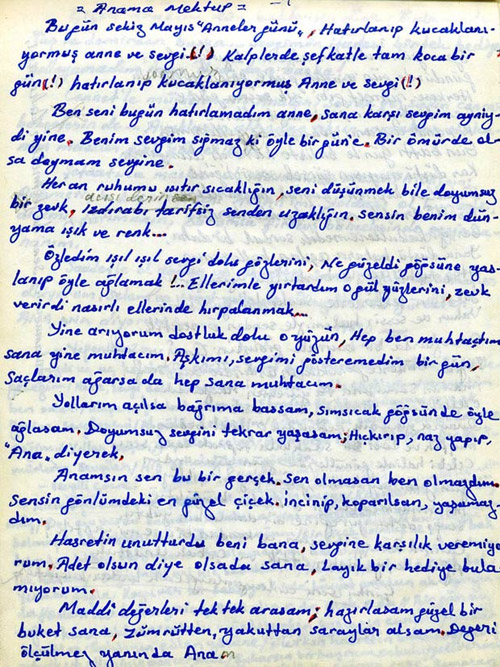 = Anama Mektup =
Bugün sekiz Mayıs "Anneler günü", Hatırlanıp kucaklanı-
yormuş anne ve sevgi(!) Kalplerde şefkatle tam koca bir
gün(!) hatırlanıp kucaklanıyormuş Anne ve sevgi(!)
Ben seni bugün hatırlamadım anne, sana karşı sevgim ayniy-
di yine. Benim sevgim sığmaz ki öyle bir gün'e. Bir ömürde ol-
sa doymam sevgine.
Her an ruhumu ısıtır sıcaklığın, seni düşünmek bile doyumsuz
bir zevk, Izdırabı tarifsiz senden uzaklığın. sensin benim dün-
yama ışık ve renk...
Özledim ışıl ışıl sevgi dolu gözlerini, Ne güzeldi göğsüne yas-
lanıp öyle ağlamak!... Ellerimle yırtardım o gül yüzlerini, zevk
verirdi nasırlı ellerinde hırpalanmak...
Yine arıyorum dostluk dolu o yüzün, Hep ben muhtaçtım
sana yine muhtacım. Aşkımı, sevgimi gösteremedim bir gün,
Saçlarım ağarsa da hep sana muhtacım.
Yollarım açılsa bağrıma bassam, sımsıcak göğsünde öyle
ağlasam. Doyumsuz sevgini tekrar yaşasam; Hıçkırıp, naz yapıp,
"Ana" diyerek.
Anamsın sen bu bir gerçek. Sen olmasan ben olmazdım.
Sensin gönlümdeki en güzel çiçek. İncinip, koparılsan, yaşamaz-
dım.
Hasretin unutturdu beni bana, sevgine karşılık veremiyo
rum. Adet olsun diye olsada sana, Layık bir hediye bula
mıyorum.
Maddi değerleri tek tek arasam; hazırlasam güzel bir
buket sana, Zümrütten, yakuttan saraylar alsam. Değeri
ölçülmez yanında Anam